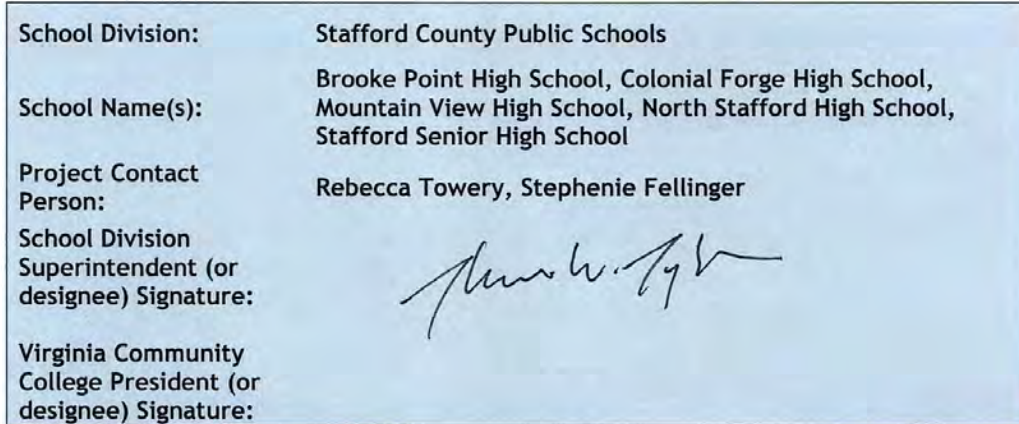 School Division: Stafford County Public Schools
Brooke Point High School, Colonial Forge High School,
School Name(s): Mountain View High School, North Stafford High School,
Stafford Senior High School
Project Contact
Person: Rebecca Towery, Stephenie Fellinger
School Division
Superintendent (or
designee) Signature:
Virginia Community
College President (or
designee) Signature: